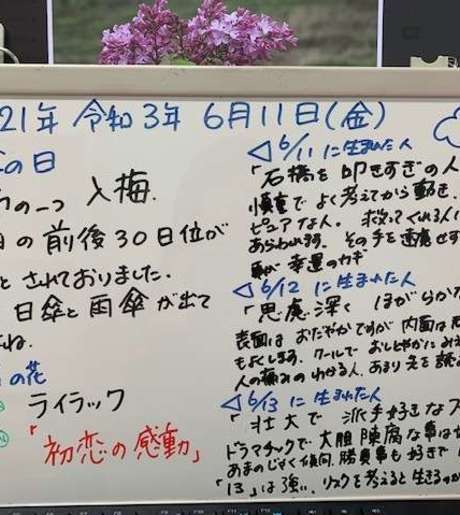 21年 令和3年 6月11日(金)
の日
の一つ 入梅.
の前後30日位が
とされておりました.
日傘と雨傘が出て
ね.
の花
ライラック
「初恋の感動」
◁6/11に生まれた人
「石橋を叩きすぎの人
慎重でよく考えてから動き.
ピュアな人. 救ってくれる人に
あらわれます. その手を遠慮せず
事が幸運のカギ
◁6/12に生まれた人
「思慮深く ほがらかな
表面はおだやかですが内面は
もよくします. クールでおしとやかにみえ
人の痛みのわかる人. あまり先を読み
◁6/13に生まれた人
「壮大で 派手好きなス
ドラマチックで大胆陳腐な事は
あまのじゃく傾向. 勝負事も好きで
「13」は強い. リスクを考えると生きるのが